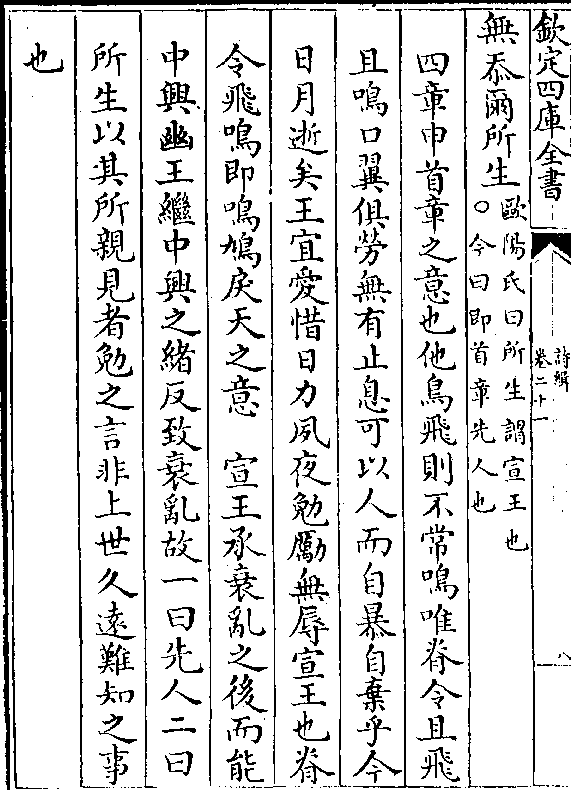 欽定四庫全書
詩緝
卷二十一
八
無忝爾所生歐陽氏曰所生謂宣王也
○今曰即首章先人也
四章申首章之意也他鳥飛則不常鳴唯脊令且飛
且鳴口翼俱勞無有止息可以人而自暴自棄乎今
日月逝矣王宜愛惜日力夙夜勉勵無辱宣王也脊
令飛鳴即鳴鳩戾天之意　宣王承衰亂之後而能
中興幽王繼中興之緒反致衰亂故一曰先人二曰
所生以其所親見者勉之言非上世久遠難知之事
也